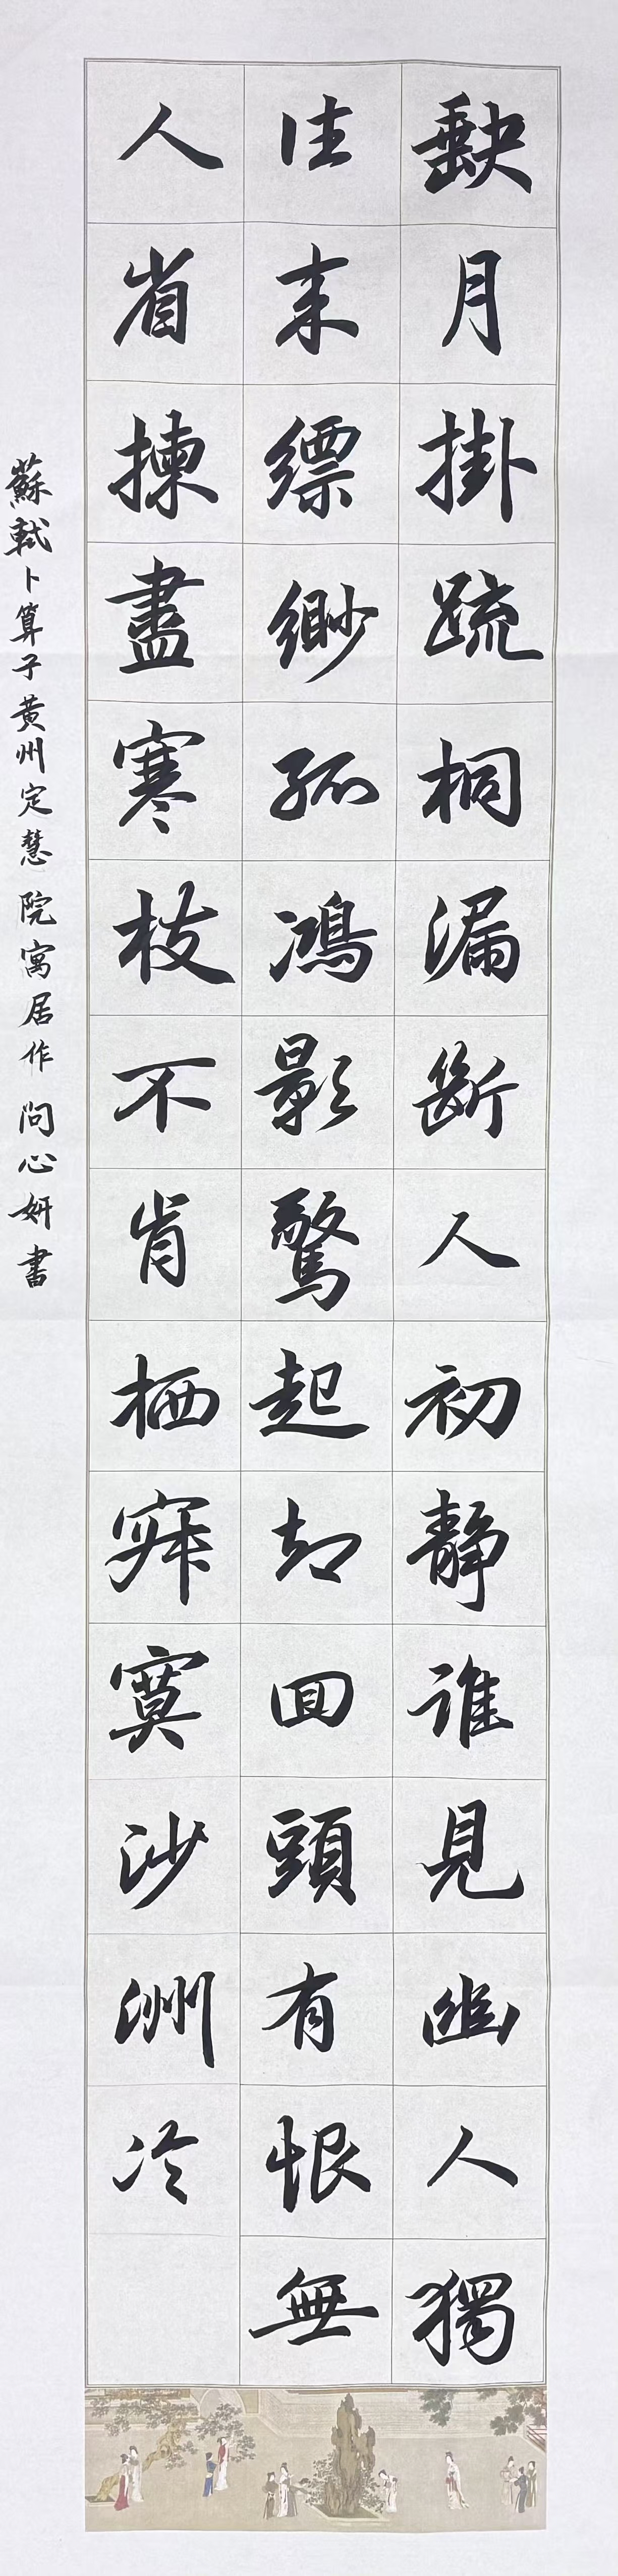 缺月掛疏桐漏斷人初静誰見幽人獨
往来縹緲孤鴻影驚起却回頭有恨無
人省揀盡寒枝不肯栖寂寞沙洲冷
蘇軾卜算子黄州定慧院寓居作問心妍書